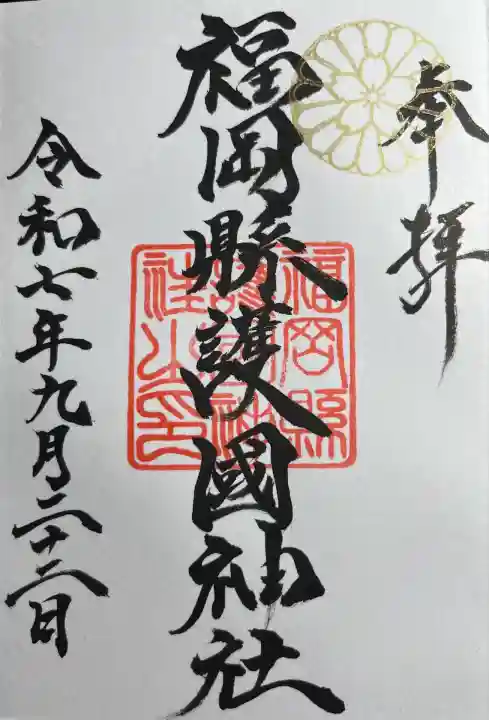 奉拝
福岡縣護國神社
福岡縣
令和七年九月二十二日